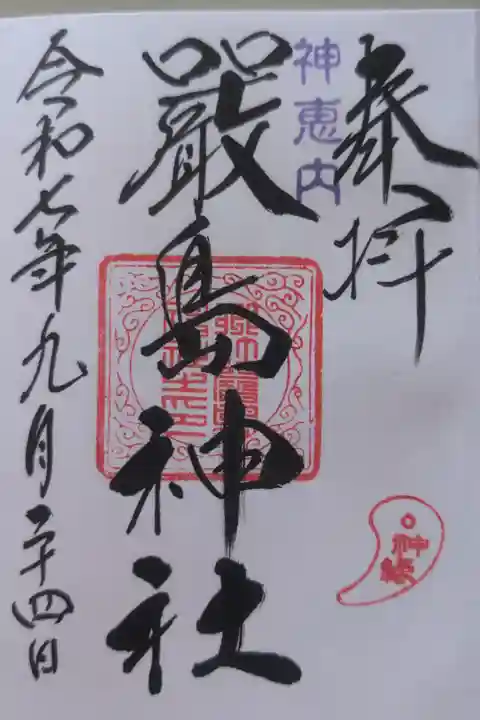 奉拝
神恵内
嚴島神社
令和七年九月二十四日